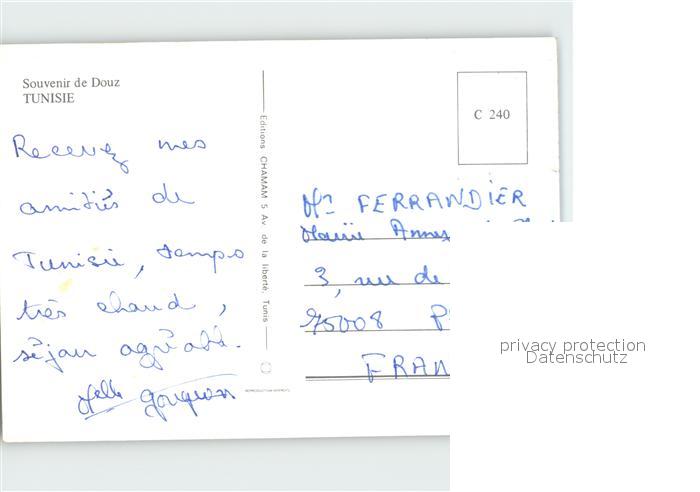 Souvenir de Douz
TUNISIE
Recevez mes
amitiés de
Tunisie, temps
très chaud,
séjour agréabl.
Melle
Editions CHAMAM 5 Av. de la liberté, Tunis
REPRODUCTION INTERDITE
C 240
Mr FERRANDIER
Mairie Annex
3, rue de
75008 P
FRAN
privacy protection
Datenschutz